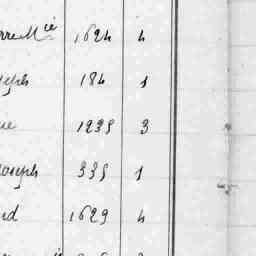 rre Mie 1624 4
seph 184 1
ue 1235 3
Joseph 335 1
nd 1629 4